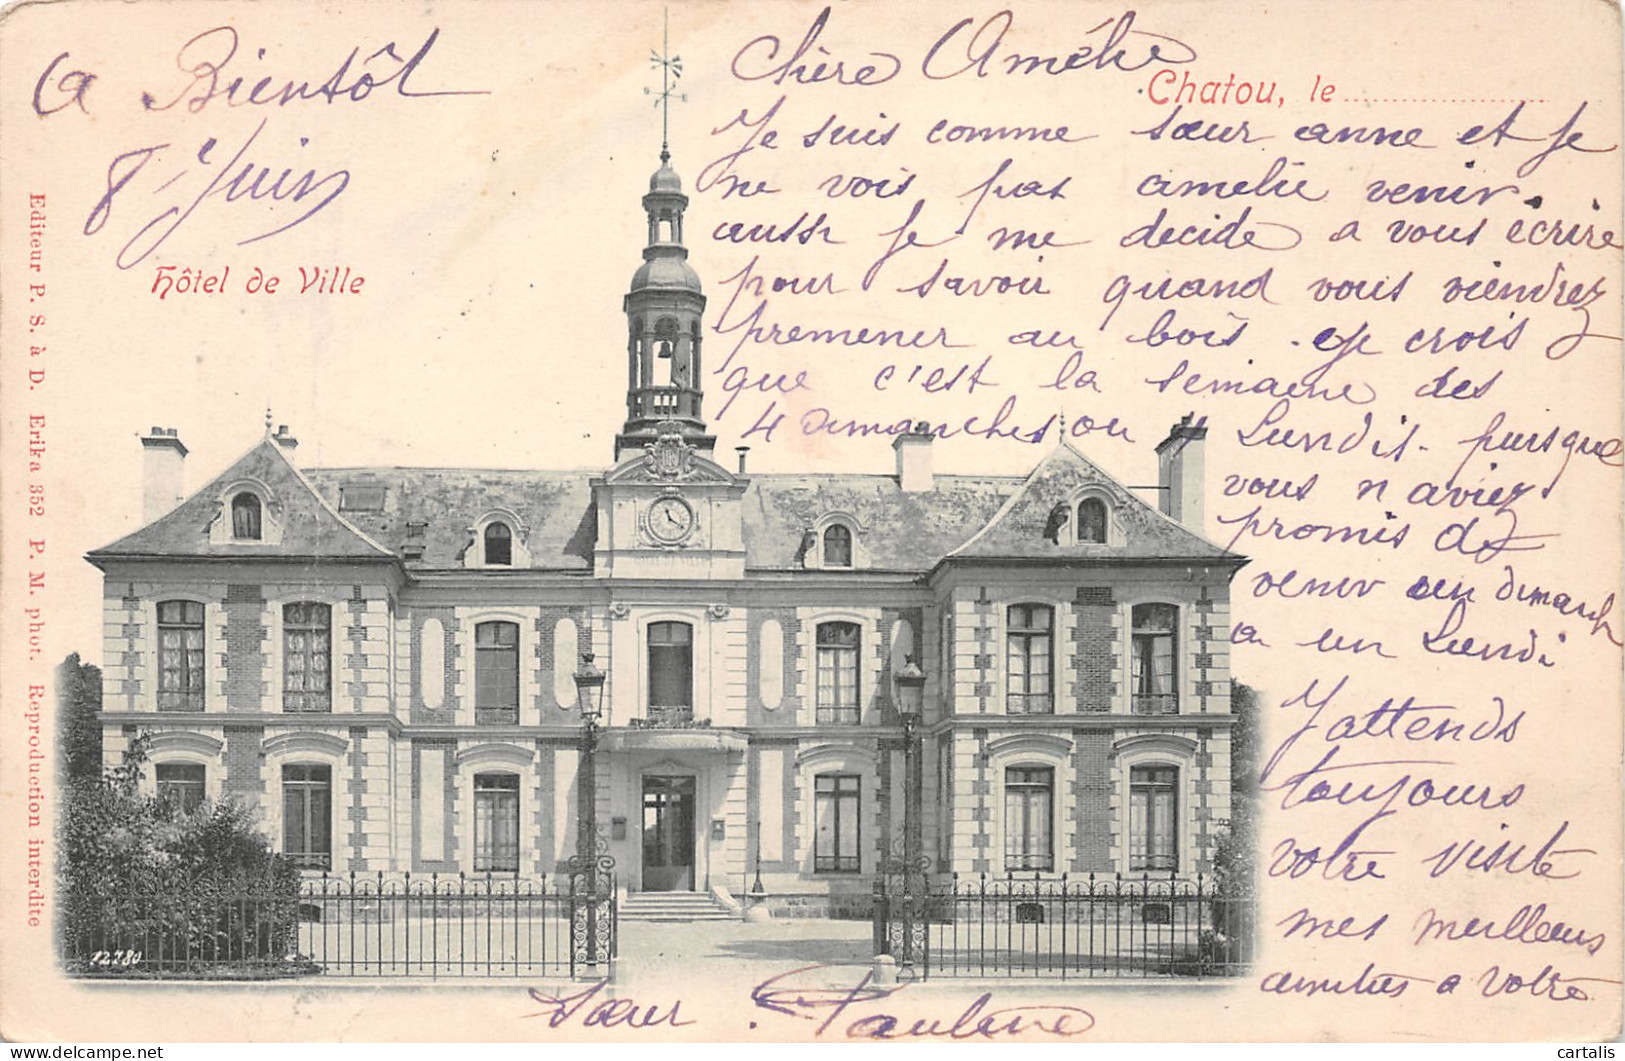 a Bientôt
8 Juin
Hôtel de Ville
Chère Amélie
Chatou, le
Je suis comme sœur anne et je
ne vois pas amelie venir.
aussi je me decide a vous écrire
pour savoir quand vous viendrez
promener au bois. Je crois
que c'est la semaine des
4 Dimanches ou 4 Lundis. puisque
vous n aviez
promis de
venir un Dimanch
a un Lundi
J attends
toujours
votre visite
mes meilleurs
amities a votre
Sœur. Pauline
Editeur P. S. à D. Erika 352 P. M. phot. Reproduction interdite
HOTEL DE VILLE
12780
cartalis
www.delcampe.net